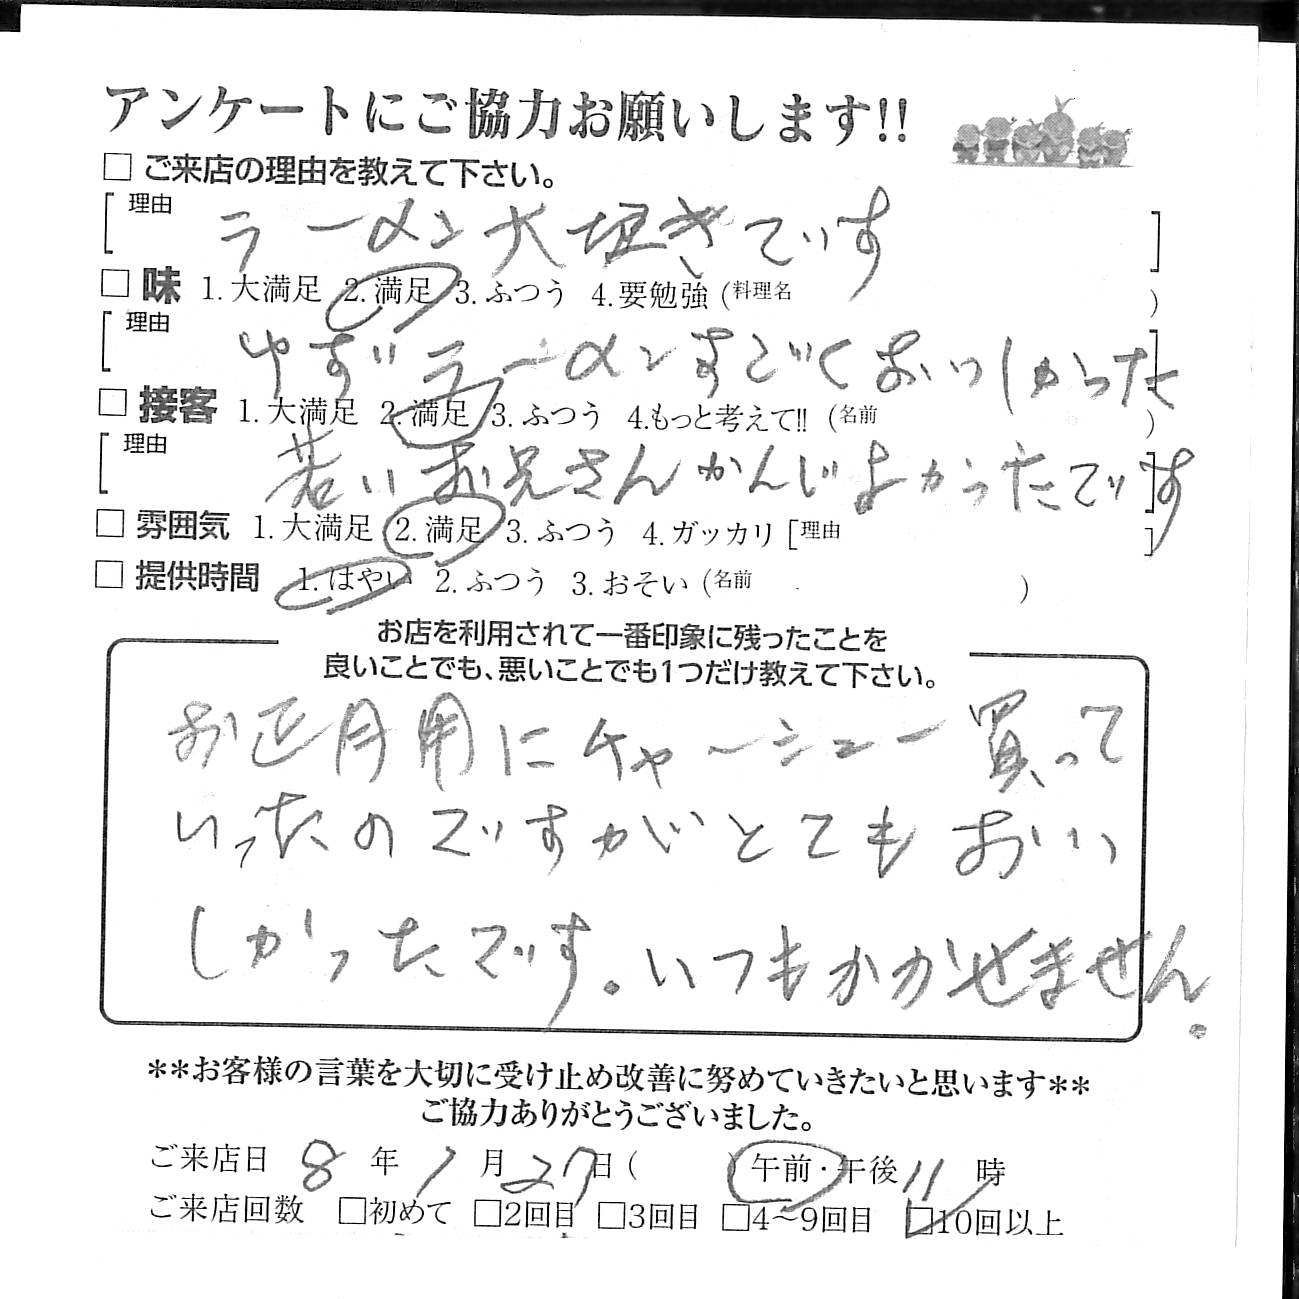 アンケートにご協力お願いします!!
□ ご来店の理由を教えて下さい。
[理由 ラーメン大好きです ]
□ 味 1.大満足 2.満足 3.ふつう 4.要勉強 (料理名 )
[理由 ゆずラーメンすごくおいしかった ]
□ 接客 1.大満足 2.満足 3.ふつう 4.もっと考えて!! (名前 )
[理由 若いお兄さんかんじよかったです ]
□ 雰囲気 1.大満足 2.満足 3.ふつう 4.ガッカリ [理由 ]
□ 提供時間 1.はやい 2.ふつう 3.おそい (名前 )
お店を利用されて一番印象に残ったことを
良いことでも、悪いことでも1つだけ教えて下さい。
お正月用にチャーシュー買って
いったのですがとてもおいい
しかったです。いつもかかせません.
**お客様の言葉を大切に受け止め改善に努めていきたいと思います**
ご協力ありがとうございました。
ご来店日 8年1月27日( ) 午前・午後 11時
ご来店回数 □初めて □2回目 □3回目 □4〜9回目 □10回以上